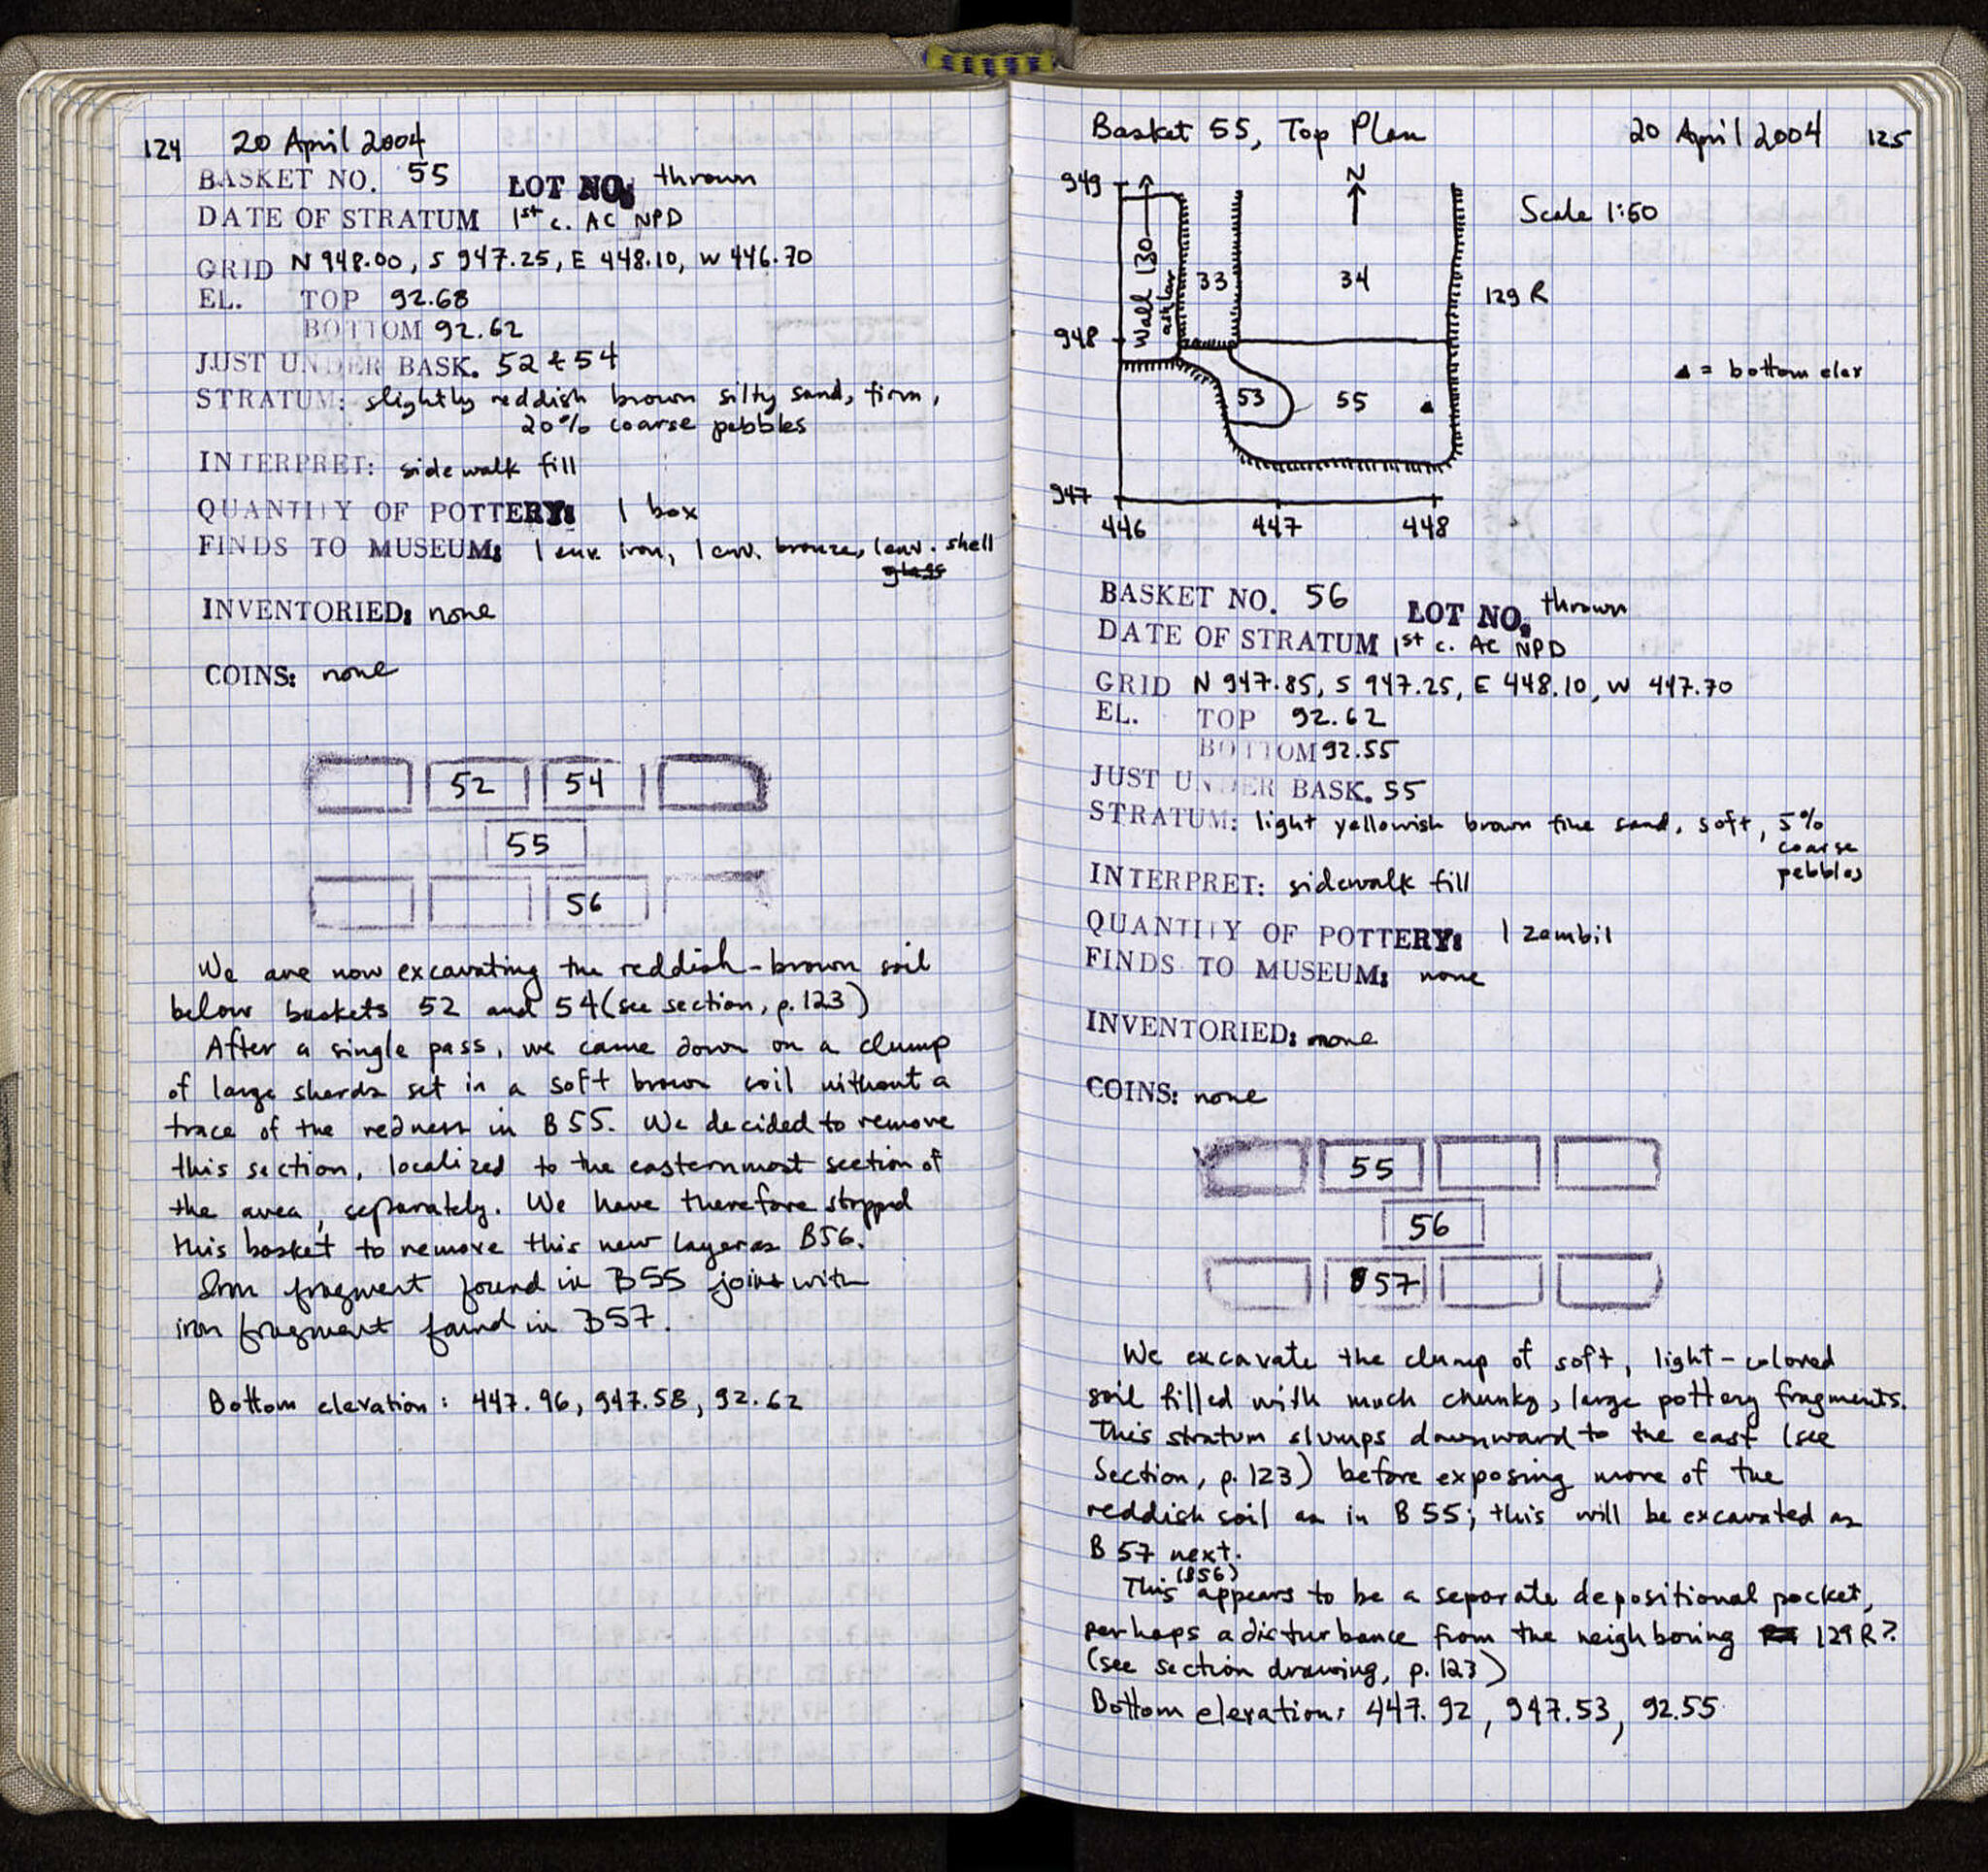 124 20 April 2004
BASKET NO. 55 LOT NO: thrown
DATE OF STRATUM 1st c. AC NPD
GRID N 948.00, S 947.25, E 448.10, W 446.70
EL. TOP 92.68
BOTTOM 92.62
JUST UNDER BASK. 52 & 54
STRATUM: slightly reddish brown silty sand, firm,
20% coarse pebbles
INTERPRET: sidewalk fill
QUANTITY OF POTTERY: 1 box
FINDS TO MUSEUM: 1 env. iron, 1 env. bronze, 1 env. shell
glass
INVENTORIED: none
COINS: none
52 54
55
56
We are now excavating the reddish-brown soil
below baskets 52 and 54 (see section, p. 123)
After a single pass, we came down on a clump
of large sherds set in a soft brown soil without a
trace of the redness in B55. We decided to remove
this section, localized to the easternmost section of
the area, separately. We have therefore stopped
this basket to remove this new layer as B56.
Iron fragment found in B55 joins with
iron fragment found in B57.
Bottom elevation: 447.96, 947.58, 92.62
Basket 55, Top Plan 20 April 2004 125
949 N
Scale 1:50
Wall 130
33 34
129 R
948
▲ = bottom elev
53 55
947
446 447 448
BASKET NO. 56 LOT NO. thrown
DATE OF STRATUM 1st c. AC NPD
GRID N 947.85, S 947.25, E 448.10, W 447.70
EL. TOP 92.62
BOTTOM 92.55
JUST UNDER BASK. 55
STRATUM: light yellowish brown fine sand, soft, 5%
coarse
pebbles
INTERPRET: sidewalk fill
QUANTITY OF POTTERY: 1 zembil
FINDS TO MUSEUM: none
INVENTORIED: none
COINS: none
55
56
57
We excavate the clump of soft, light-colored
soil filled with much chunky, large pottery fragments.
This stratum slumps downward to the east (see
Section, p. 123) before exposing more of the
reddish soil as in B55; this will be excavated as
B 57 next.
(B56)
This appears to be a separate depositional pocket,
perhaps a disturbance from the neighboring 129R?
(see section drawing, p. 123)
Bottom elevation: 447.92, 947.53, 92.55